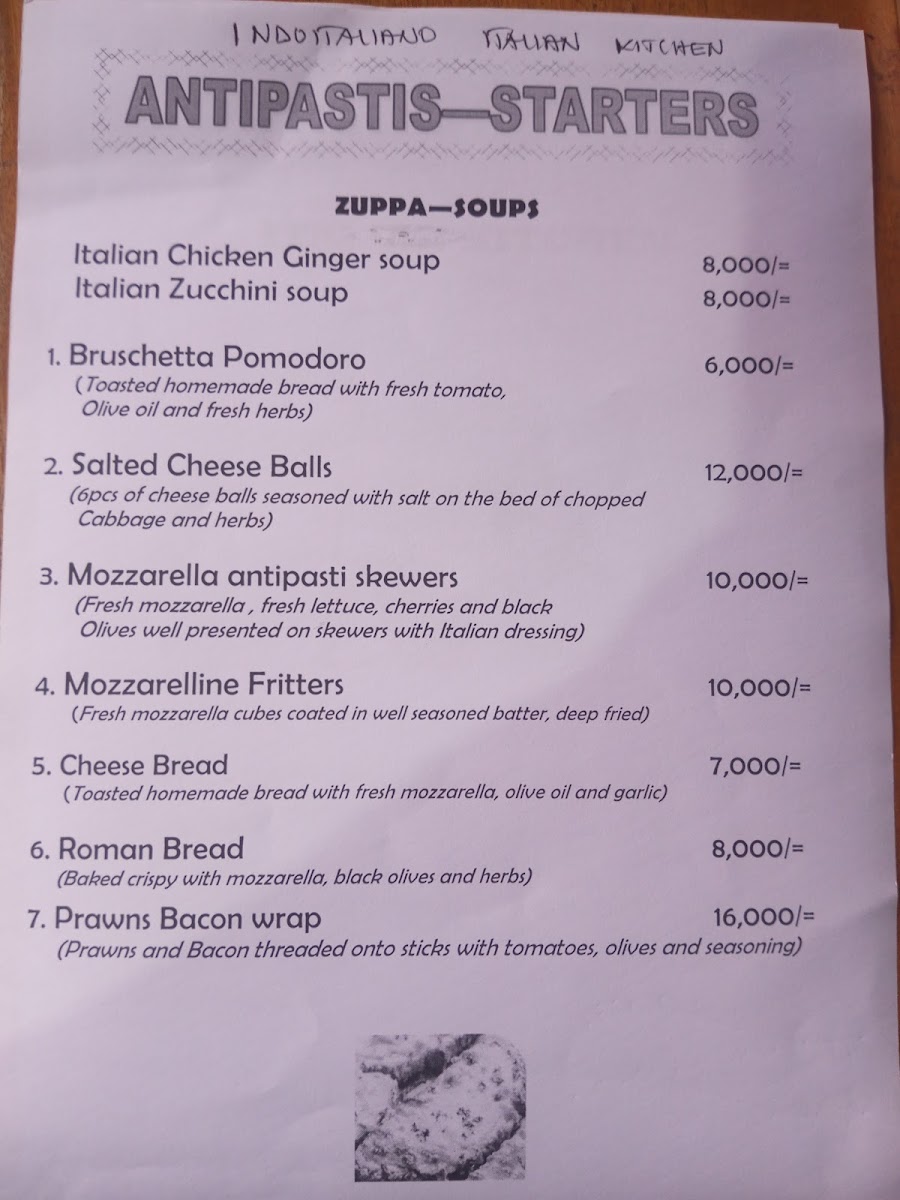 INDOITALIANO ITALIAN KITCHEN
ANTIPASTIS—STARTERS
ZUPPA—SOUPS
Italian Chicken Ginger soup 8,000/=
Italian Zucchini soup 8,000/=
1. Bruschetta Pomodoro 6,000/=
(Toasted homemade bread with fresh tomato,
Olive oil and fresh herbs)
2. Salted Cheese Balls 12,000/=
(6pcs of cheese balls seasoned with salt on the bed of chopped
Cabbage and herbs)
3. Mozzarella antipasti skewers 10,000/=
(Fresh mozzarella , fresh lettuce, cherries and black
Olives well presented on skewers with Italian dressing)
4. Mozzarelline Fritters 10,000/=
(Fresh mozzarella cubes coated in well seasoned batter, deep fried)
5. Cheese Bread 7,000/=
(Toasted homemade bread with fresh mozzarella, olive oil and garlic)
6. Roman Bread 8,000/=
(Baked crispy with mozzarella, black olives and herbs)
7. Prawns Bacon wrap 16,000/=
(Prawns and Bacon threaded onto sticks with tomatoes, olives and seasoning)